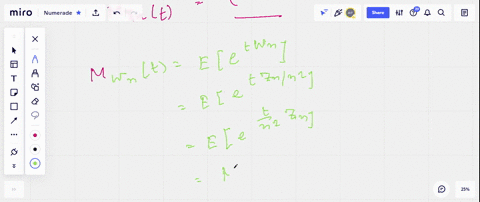 miro Numerade Share
n(t) = (
M_{W_n}(t) = E[e^{tW_n}]
= E[e^{tZ_n/n^2}]
= E[e^{\frac{t}{n^2} Z_n}]
=
25%